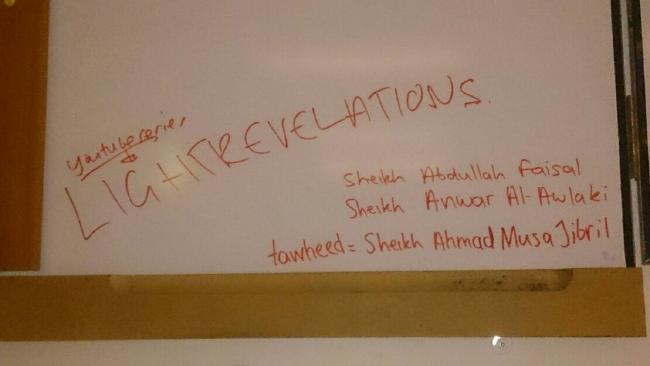 Youtube series
LIGHTREVELATIONS.
Sheikh Abdullah faisal
Sheikh Anwar Al-Awlaki
tawheed = Sheikh Ahmad Musa Jibril